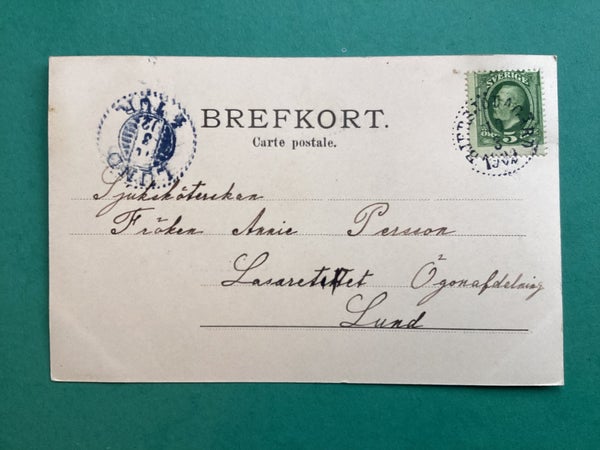 BREFKORT.
Carte postale.
SVERIGE
5
LUND
Sjuksköterskan
Fröken Annie Persson
Lasarettet Ögonafdelning
Lund